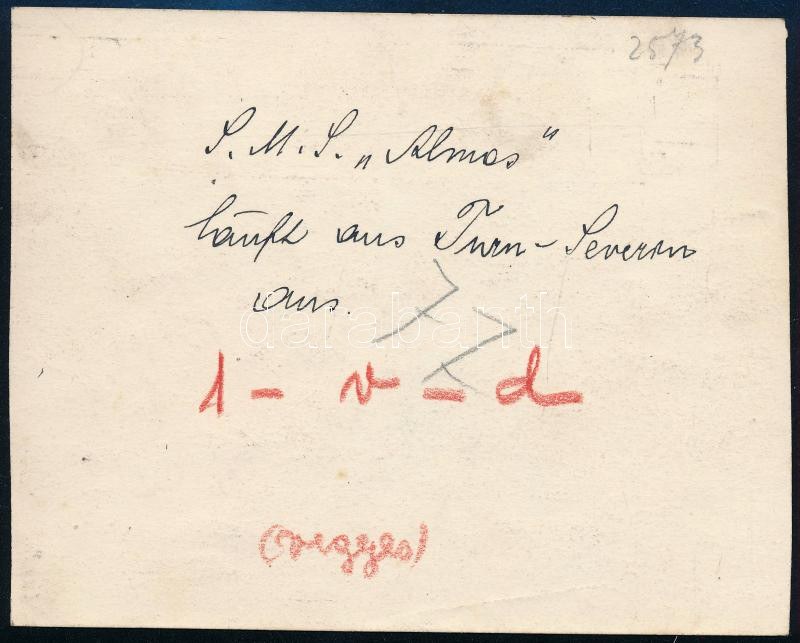 2573
S.M.S. „Almos"
läuft aus Turn-Severin
aus.
darabanth
1 - v - d